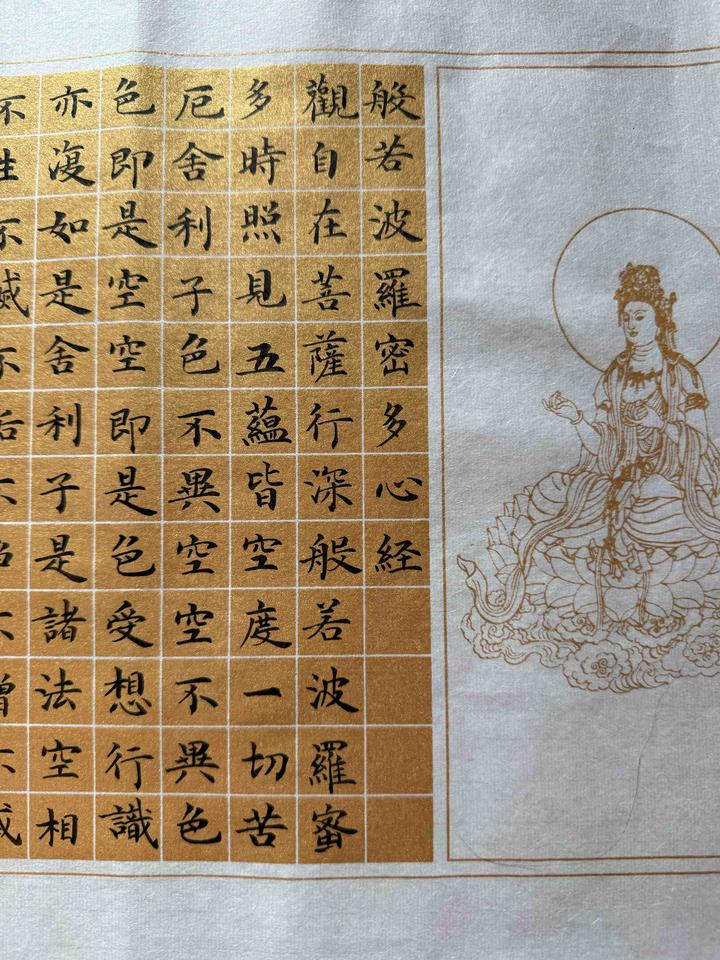 般若波羅密多心経
觀自在菩薩行深般若波羅蜜
多時照見五蘊皆空度一切苦
厄舍利子色不異空空不異色
色即是空空即是色受想行識
亦復如是舍利子是諸法空相